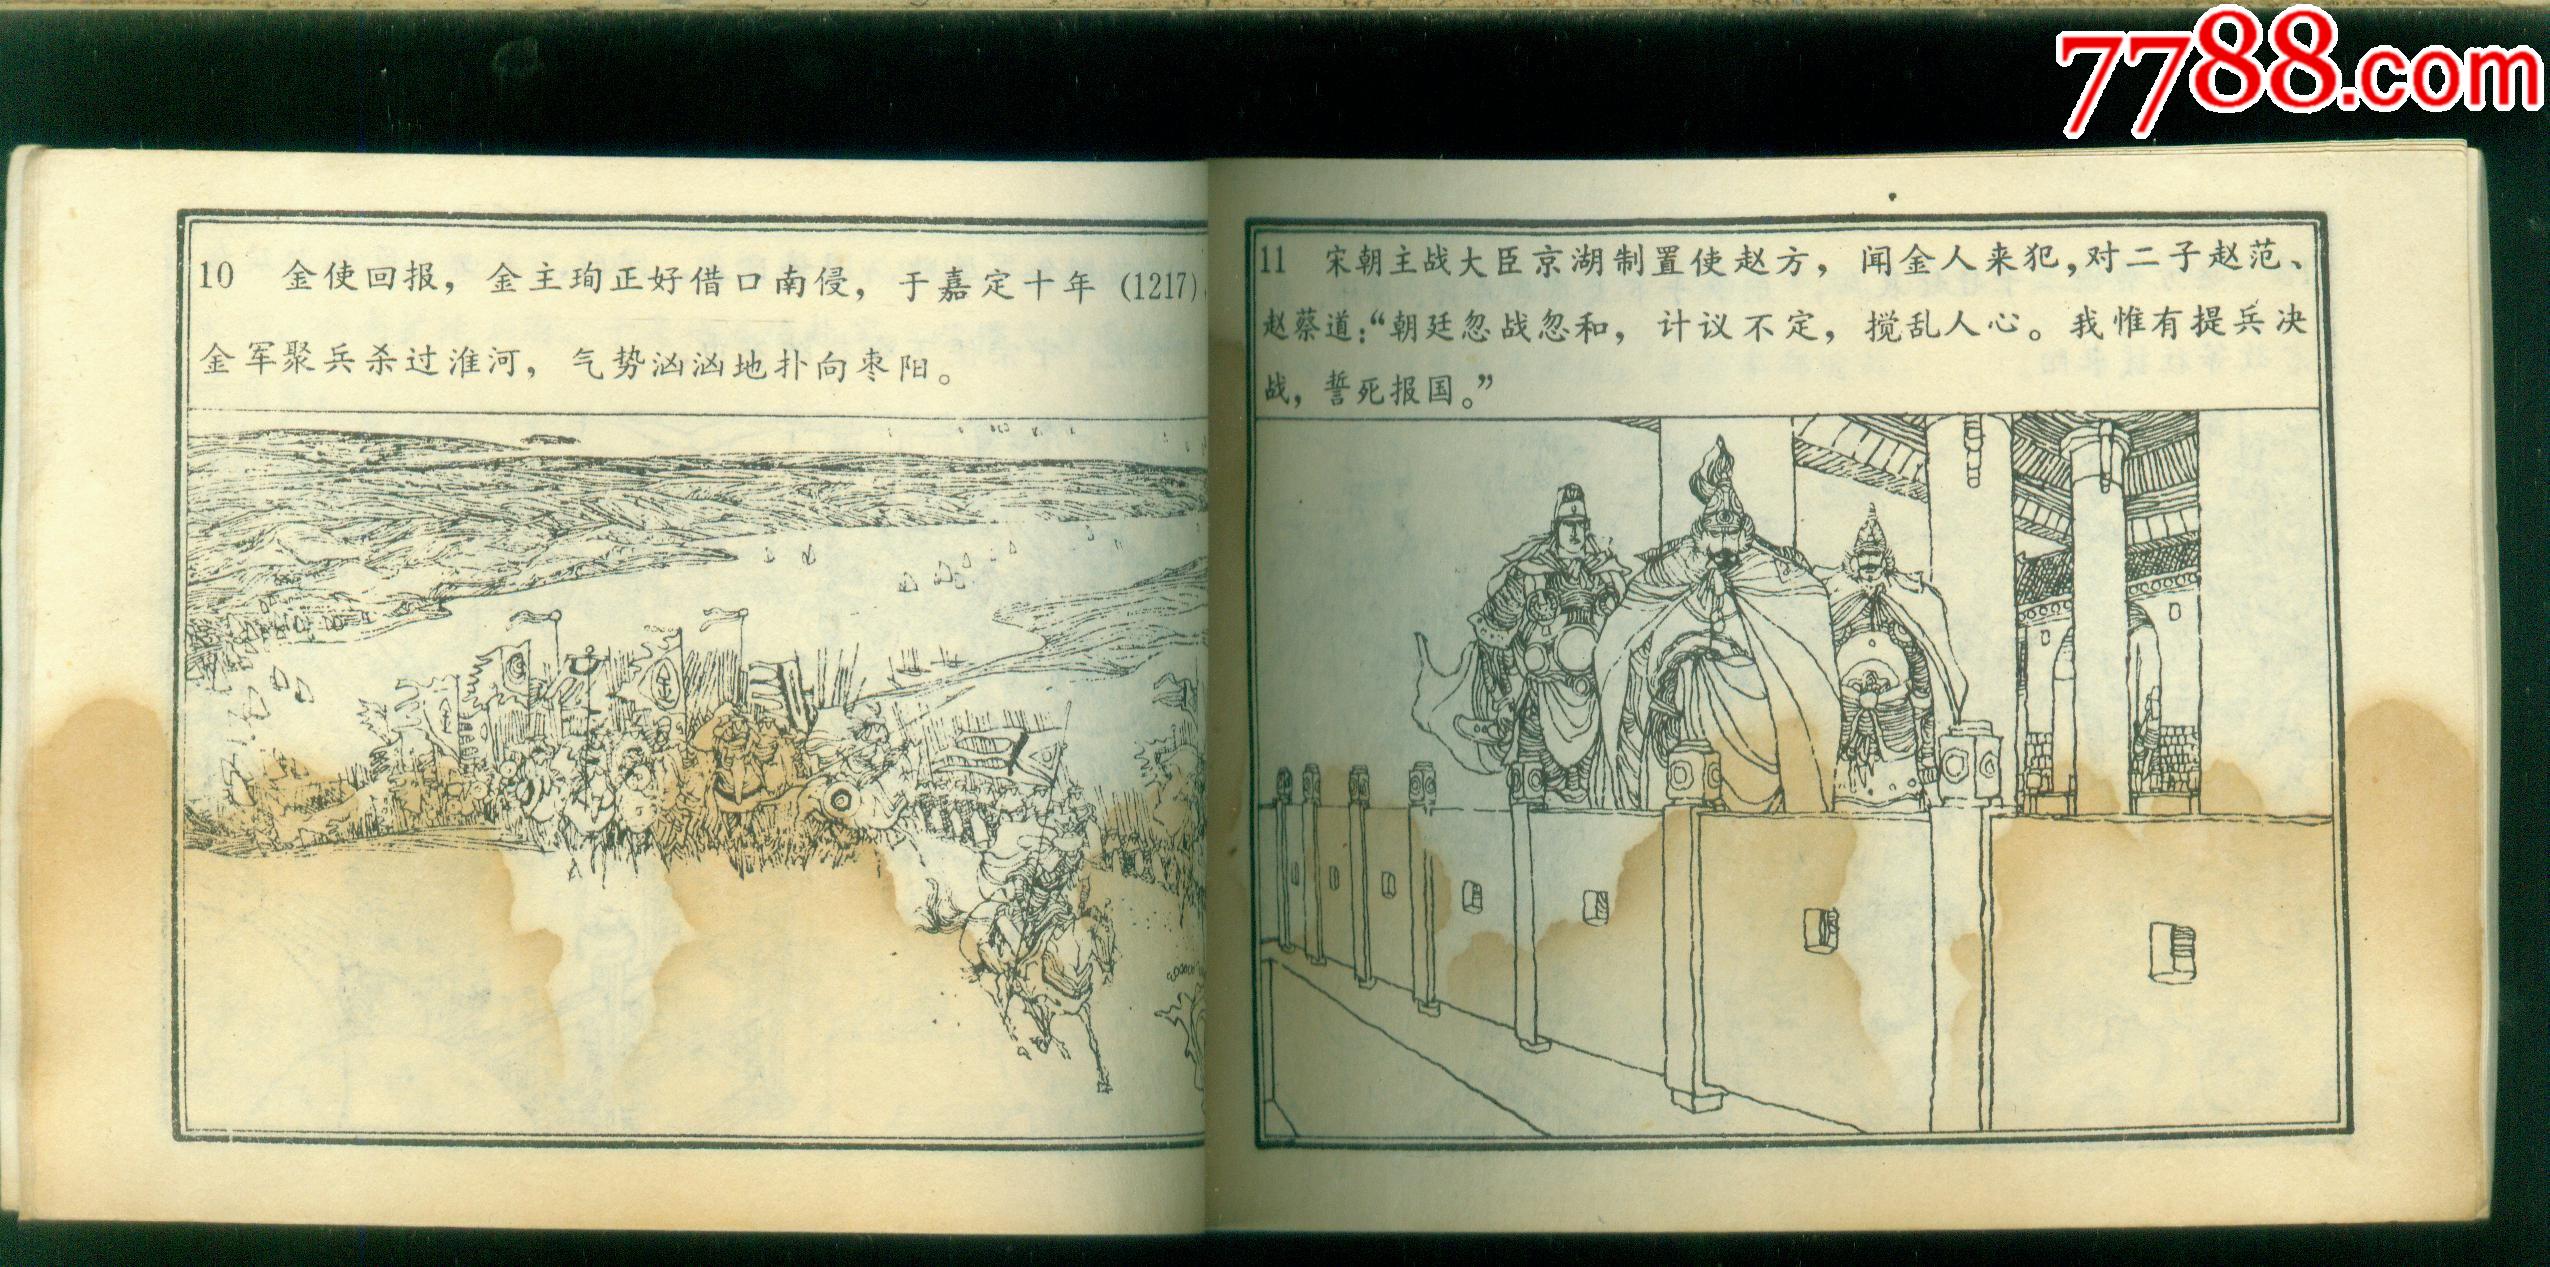 7788.com
10 金使回报，金主珣正好借口南侵，于嘉定十年（1217）
金军聚兵杀过淮河，气势汹汹地扑向枣阳。
金
金
11 宋朝主战大臣京湖制置使赵方，闻金人来犯，对二子赵范、
赵蔡道：“朝廷忽战忽和，计议不定，搅乱人心。我惟有提兵决
战，誓死报国。”